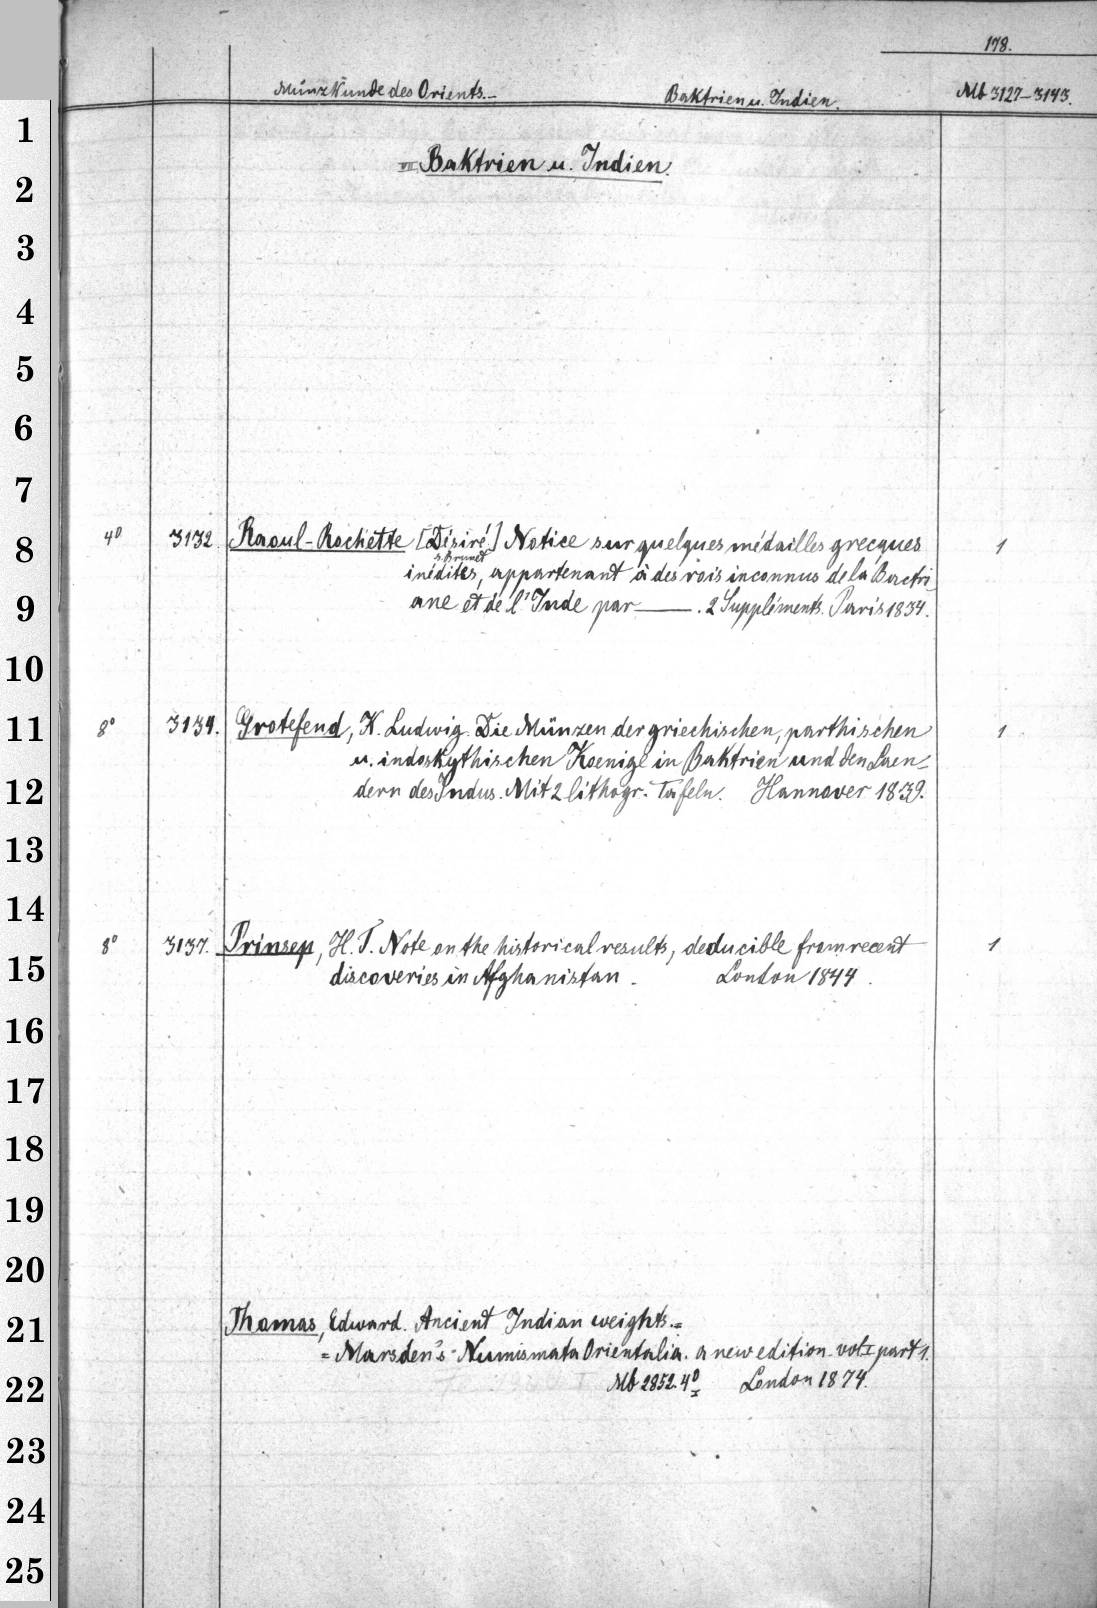 178.
Münzkunde des Orients. Baktrien u. Indien. Mb 3127-3143.
VII. Baktrien u. Indien.
4° 3132 Raoul-Rochette [Désiré] Notice sur quelques médailles grecques 1
s. Brunet
inédites, appartenant à des rois inconnus de la Bactri-
ane et de l'Inde par ——. 2 Suppléments. Paris 1834.
8° 3134. Grotefend, K. Ludwig. Die Münzen der griechischen, parthischen 1
u. indoskythischen Koenige in Baktrien und den Laen-
dern des Indus. Mit 2 lithogr. Tafeln. Hannover 1839.
8° 3137. Prinsep, H. T. Note on the historical results, deducible from recent 1
discoveries in Afghanistan. London 1844.
Thomas, Edward. Ancient Indian weights. =
= Marsden's Numismata Orientalia. a new edition. vol I part 1.
Mb 2852. 4° London 1874.
1
2
3
4
5
6
7
8
9
10
11
12
13
14
15
16
17
18
19
20
21
22
23
24
25